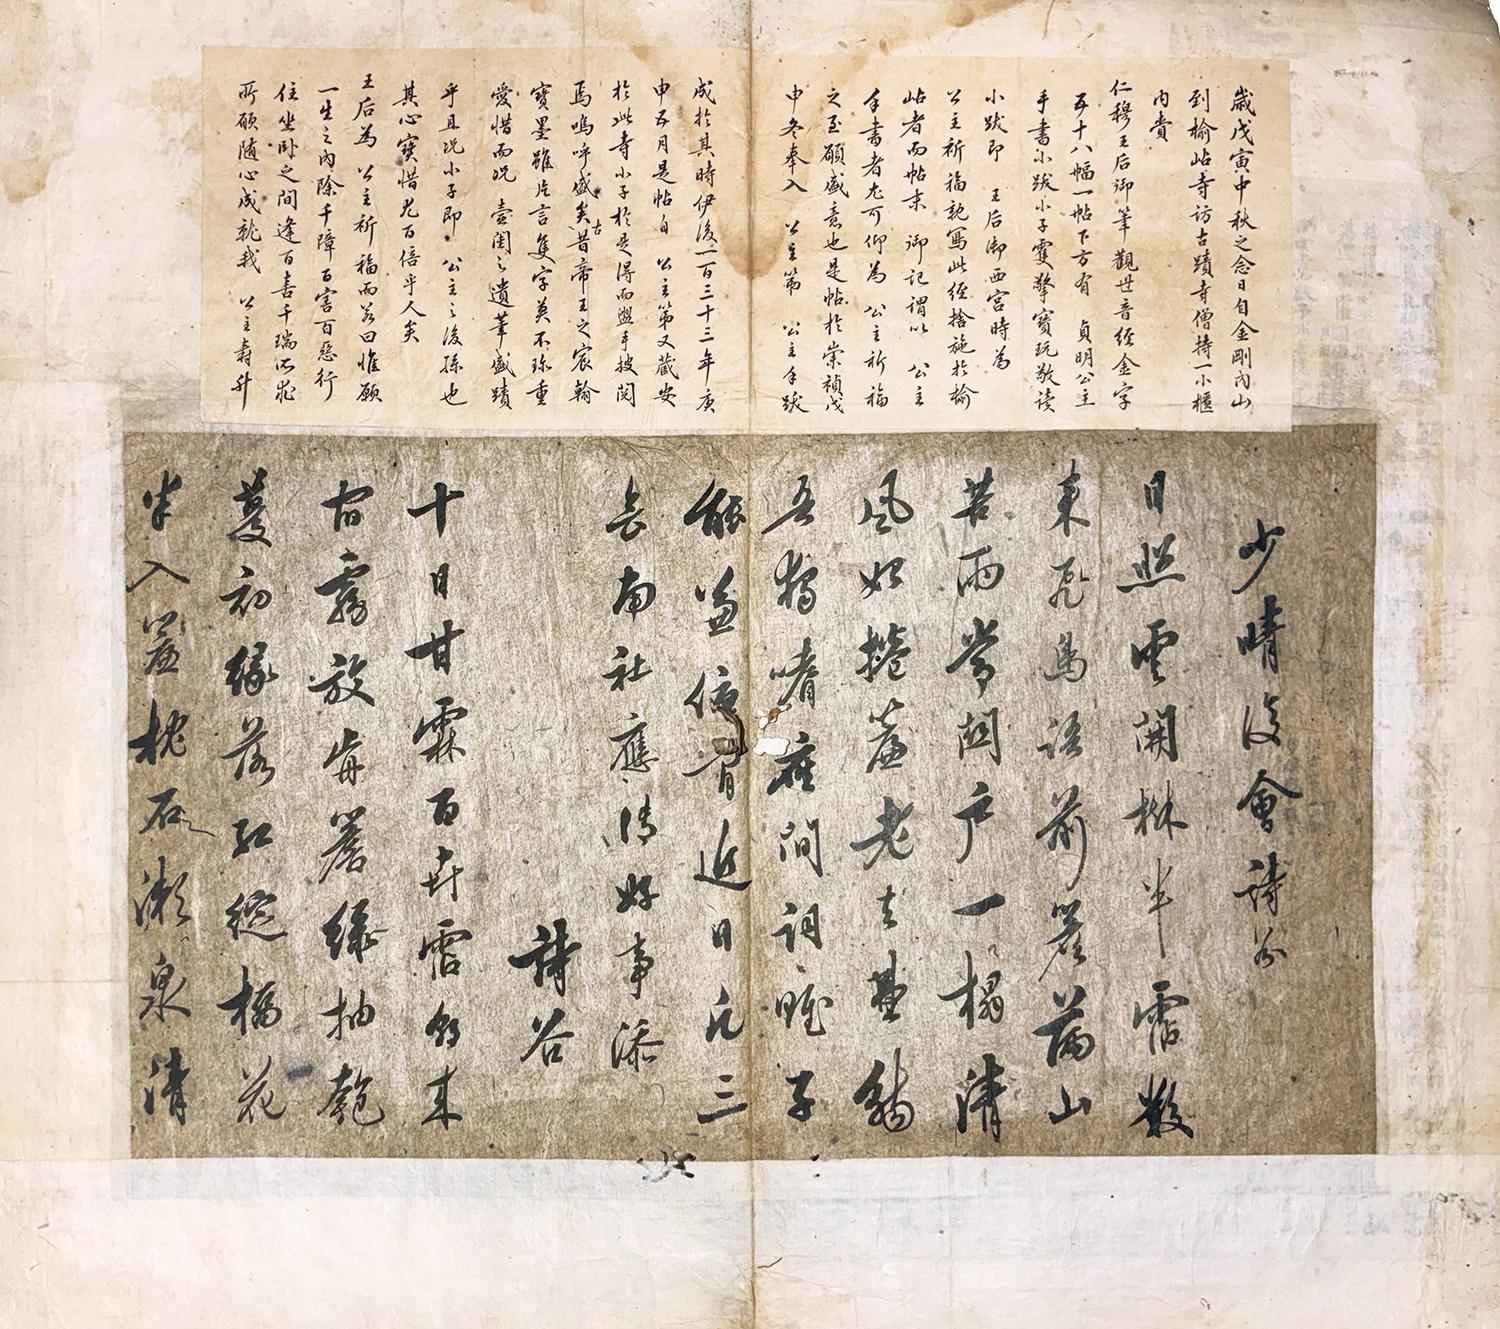 歲戊寅中秋之念日自金剛內山
到榆岾寺訪古蹟寺僧持一小櫃
內賚
仁穆王后御筆 觀世音經金字
五十八幅一帖下方有 貞明公主
手書小跋小子雙擎寶玩敬讀
小跋即 王后御西宮時為
公主祈福親寫此經捨施於榆
岾者而帖末 御記謂以 公主
手書者尤可仰為 公主祈福
之至願盛意也是帖於崇禎戊
申冬奉入 公主第 公主手跋
成於其時伊後一百三十三年庚
申五月是帖自 公主第又藏安
於此寺小子於是得而盥手披閱
焉嗚呼盛矣古昔帝王之宸翰
寶墨雖片言隻字莫不珍重
愛惜而況 壼閨之遺筆盛蹟
乎且況小子即 公主之後孫也
其心寶惜尤百倍乎人矣
王后為 公主祈福而若曰惟願
一生之內除千障百害百惡行
住坐卧之間逢百喜千瑞所求
所願隨心成就哉 公主壽升
少晴後會詩谷
日照雲開林半霑數
東飛鳥語前簷萬山
苦雨常關戶一榻清
風好捲簾老去盡觴
吾猶嗜症間詞雖子
能兼佰有近日凡三
長南社應情好事添
詩谷
十日甘霖百卉霑多來
宿霧放毎簷綠抽匏
蔓初緣落紅綻橘花
半入簾枕石漱泉清